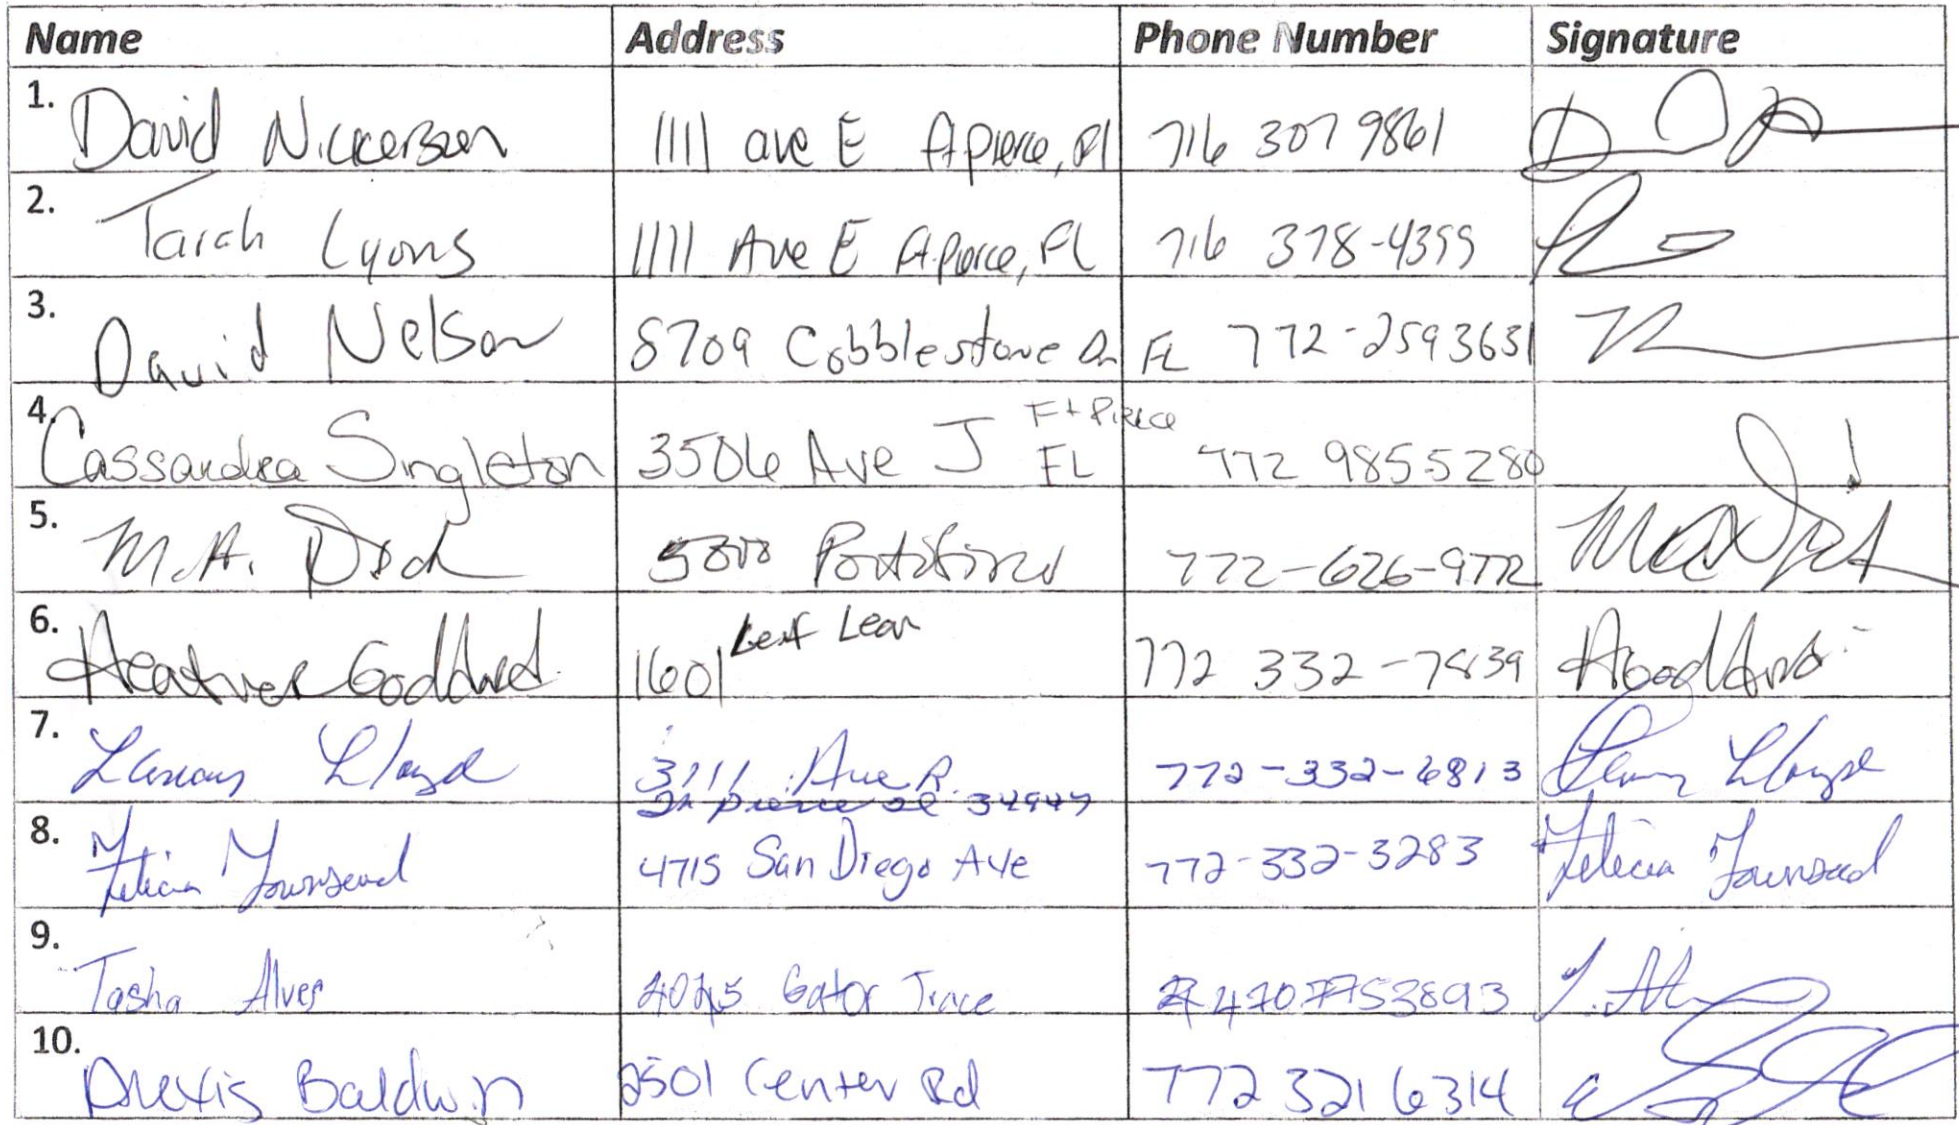 Name Address Phone Number Signature
1. David Nickerson 1111 ave E Ft pierce, Fl 716 307 9861
2. Tarah Lyons 1111 Ave E Ft Pierce, FL 716 378-4399
3. David Nelson 8709 Cobblestone Dr FL 772-2593631
4. Cassandra Singleton 3506 Ave J Ft Pierce FL 772 9855280
5. M.A. 772-626-9772
6. Heather Goddard 1601 Leaf 772 332-7839
7. Lloyd 3711 Ave R. 772-332-6813 Lloyd
Ft pierce Fl 34947
8. Felicia Townsend 4715 San Diego Ave 772-332-3283 Felicia Townsend
9. Tasha Alves Gator Trace
10. Alexis Baldwin 2501 Center Rd 772 321 6314